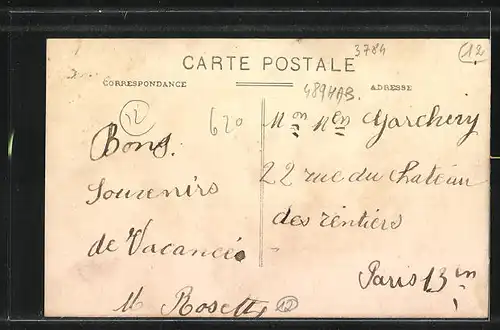 3784
12
CARTE POSTALE
CORRESPONDANCE
ADRESSE
4894AB.
12
620
Bons
Souvenirs
de Vacances
M Rosett
12
Mon Mlle Garchery
22 rue du Chateau
des rentiers
Paris 13m